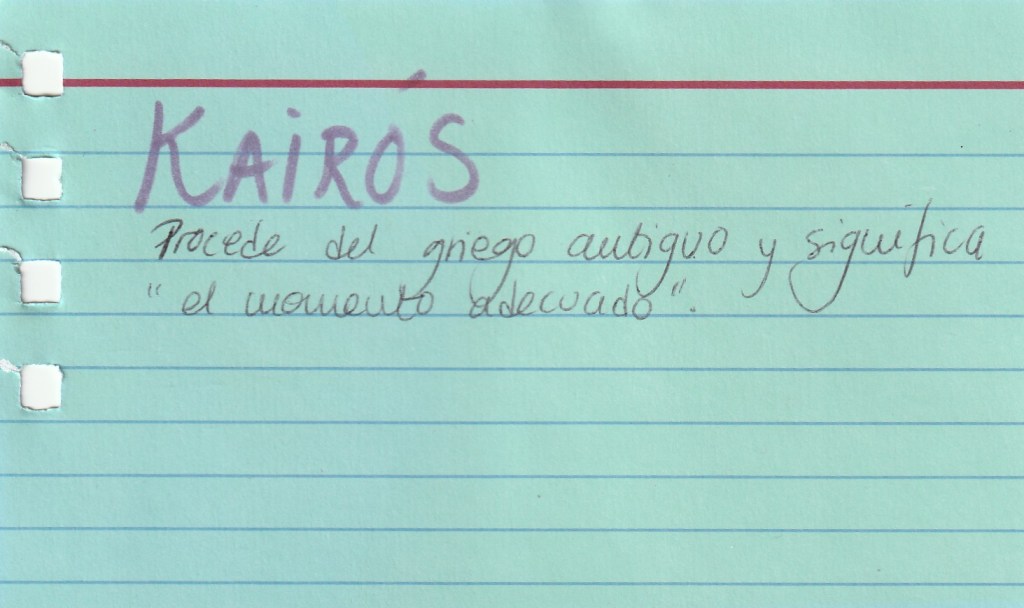 KAIRÓS
Procede del griego antiguo y significa
"el momento adecuado".